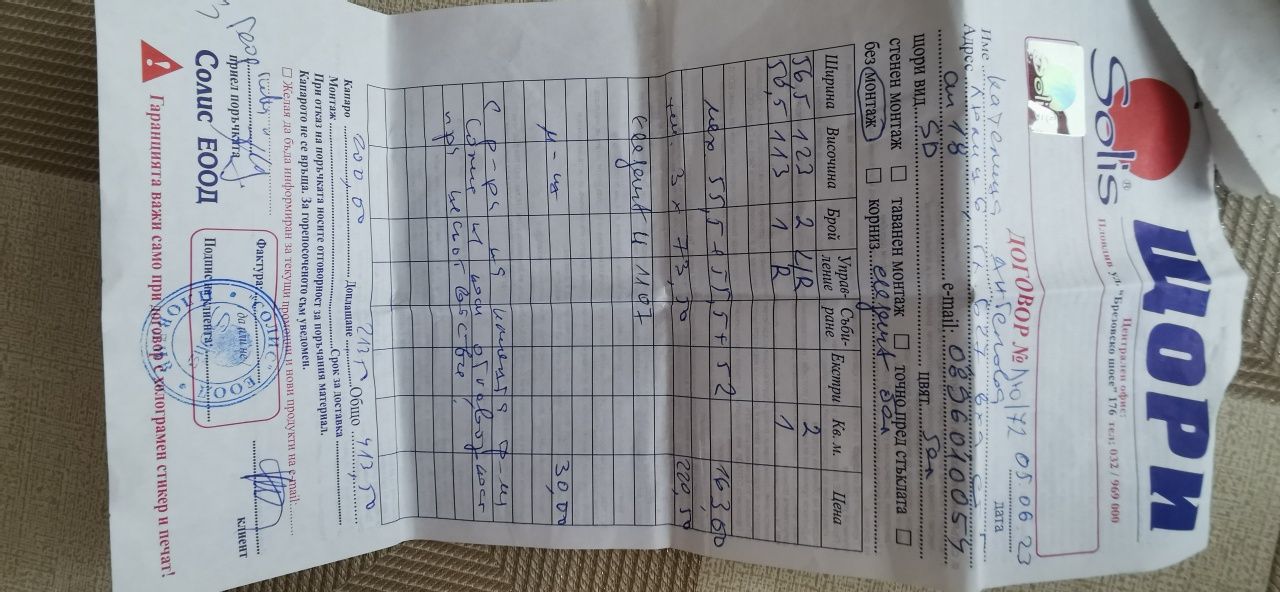 ЩОРИ
Solis®
Централен офис:
Пловдив ул. "Брезовско шосе" 176 тел: 032 / 969 000
ДОГОВОР № 05.06.23
дата
Име Катерина Ангелова
Адрес
ап 18 e-mail. 0896010054
щори вид. SD цвят бял
стенен монтаж таванен монтаж точно пред стъклата
без монтаж корниз elegant бял
Ширина Височина Брой Управление Събиране Екстри Кв. м. Цена
56,5 123 2 L/R 2
56,5 113 1 R 1
мех 55,5 + 55,5 + 52 163,00
3 x 73,50 220,50
elegant 4 1107
м-ж 30,00
С р-ри на клиента ф-ма
Солис не носи отговорност
при несъответствие
Капаро 200,00 Доплащане 213,50 Общо 413,50
Монтаж Срок за доставка
При отказ на поръчката носите отговорност за поръчания материал.
Капарото не се връща. За горепосоченото съм уведомен.
Желая да бъда информиран за текущи промоции и нови продукти на e-mail:
приел поръчката
Солис ЕООД
Фактура:
да или не
Подпис на клиента
клиент
"СОЛИС" ЕООД
Гаранцията важи само при договор с холограмен стикер и печат!